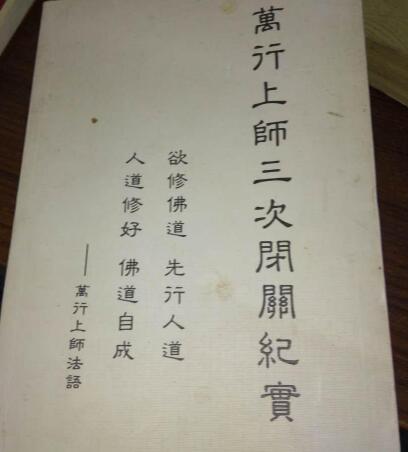 萬行上師三次閉關紀實
欲修佛道 先行人道
人道修好 佛道自成
——萬行上師法語